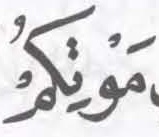 مَوْتِكُمْ